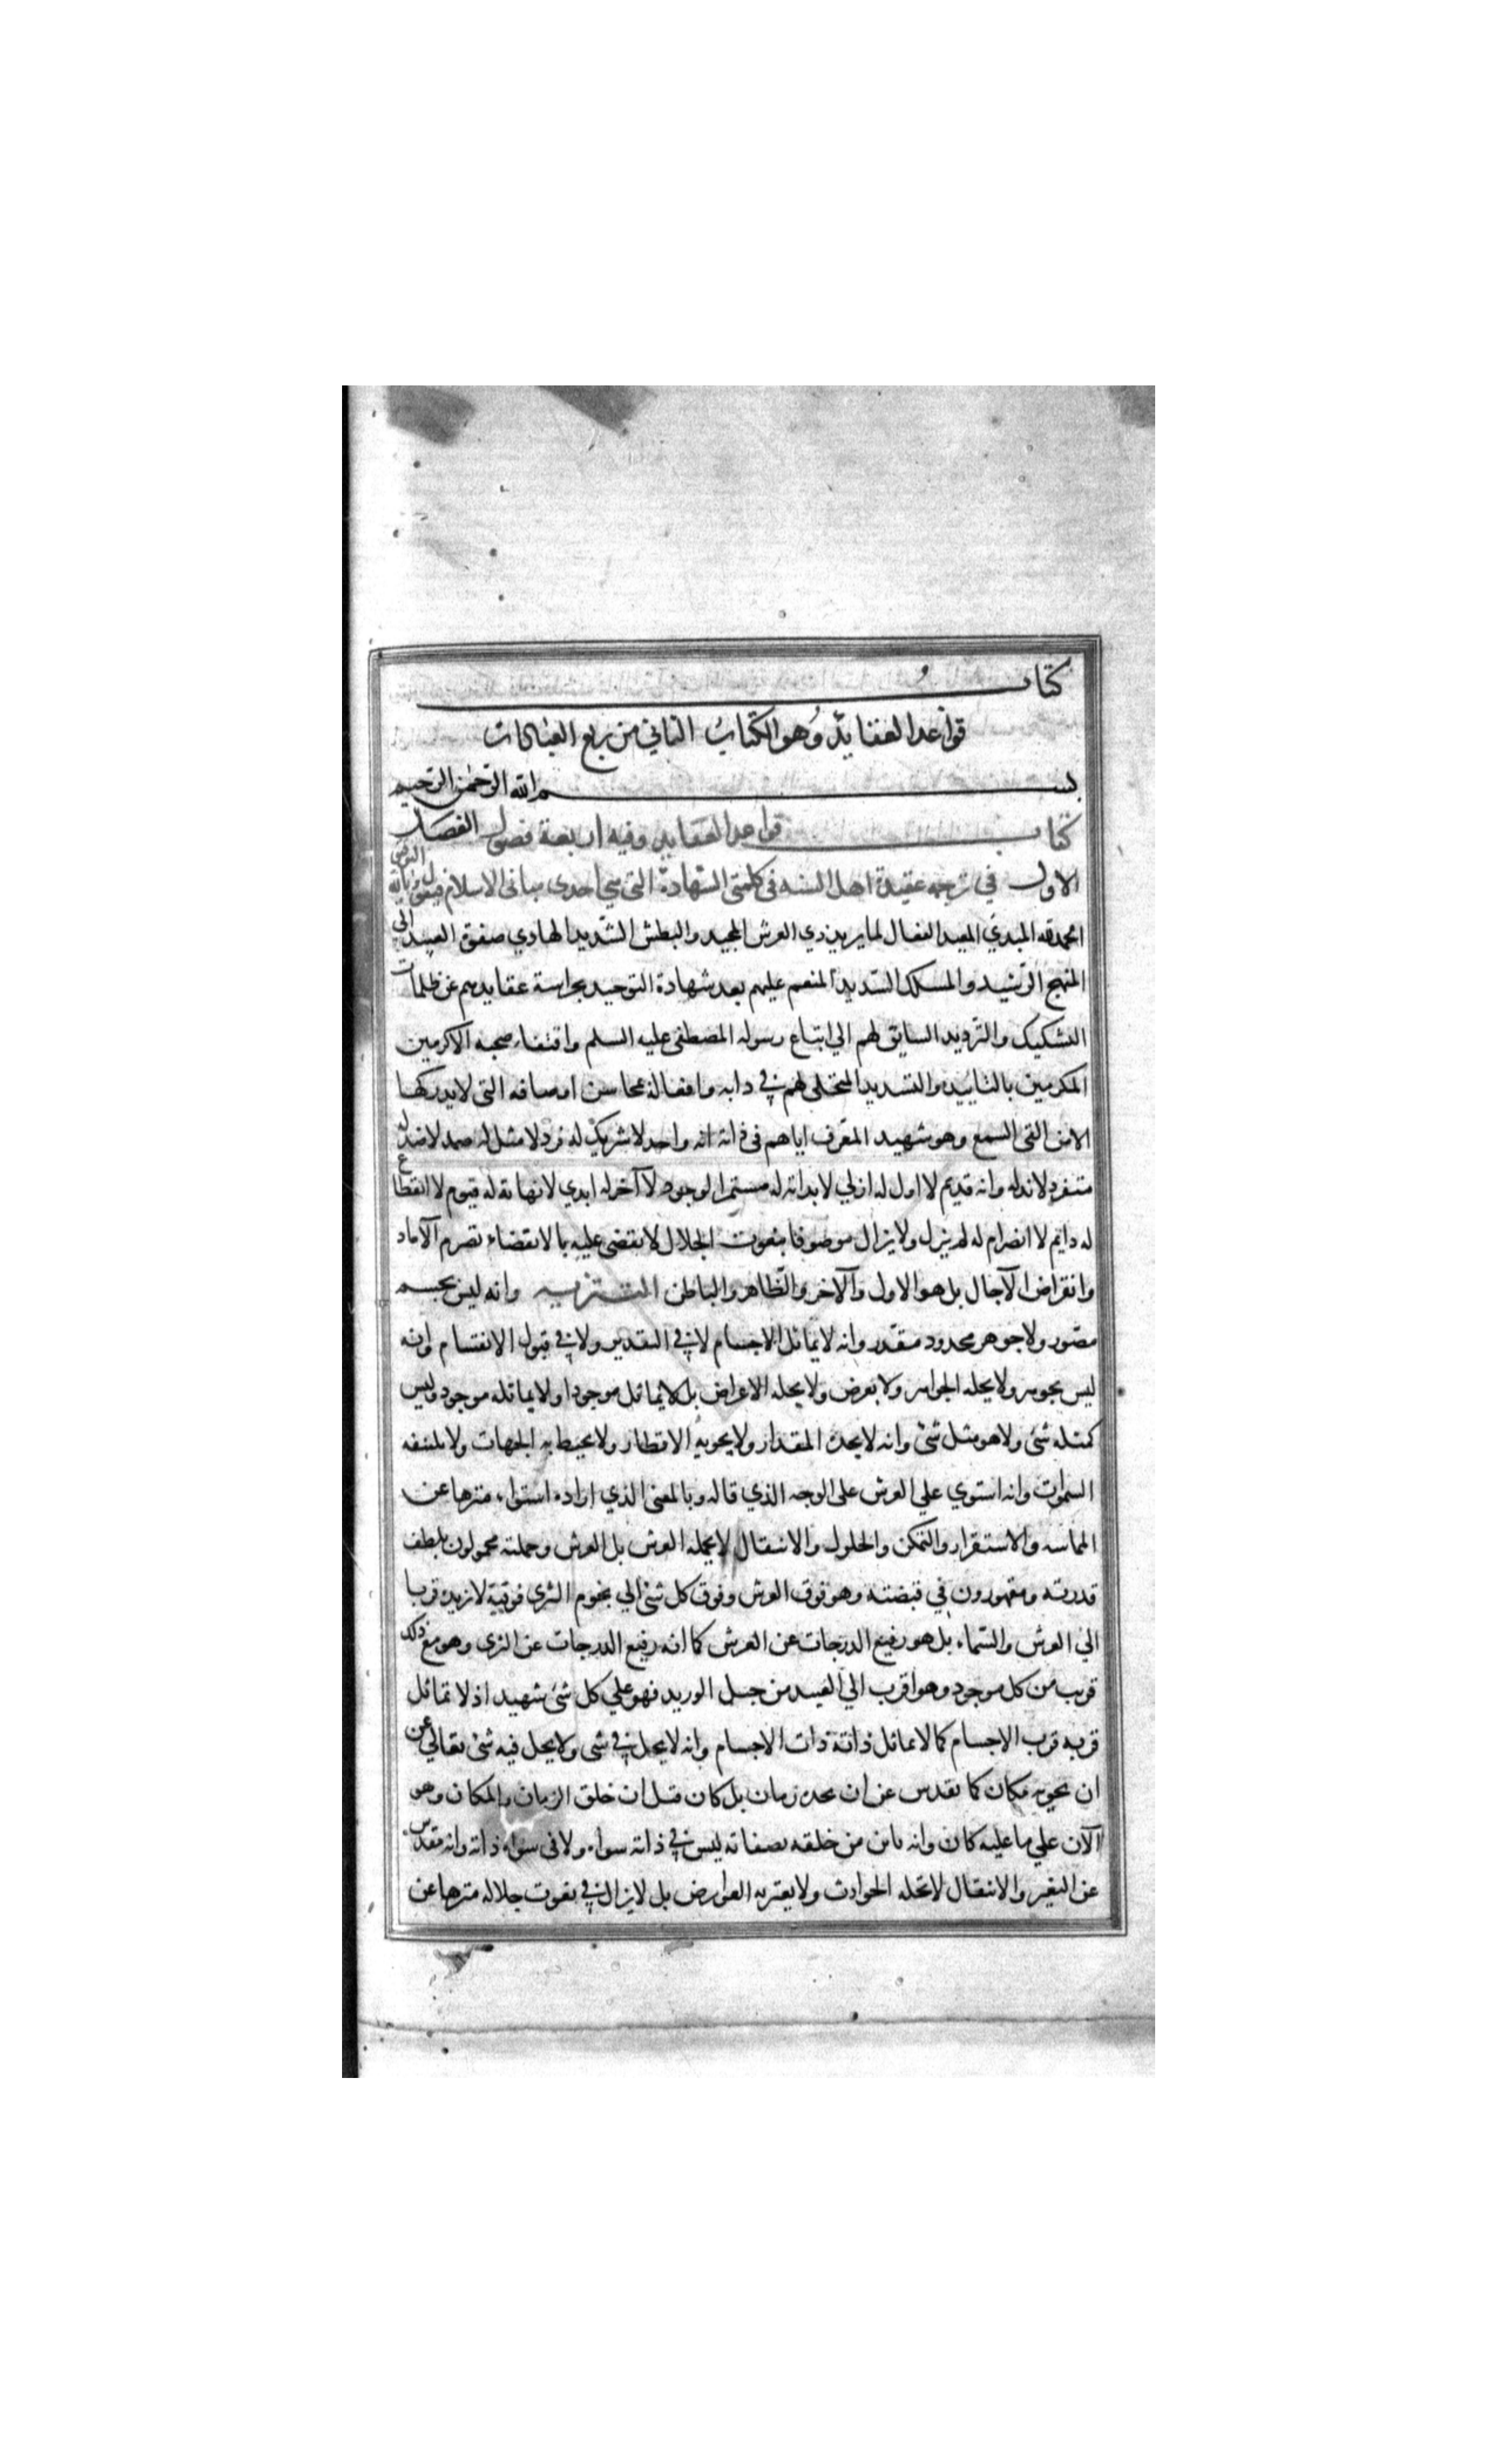 كتاب
قواعد العقايد وهو الكتاب الثاني من ربع العبادات
بسم الله الرحمن الرحيم
كتاب قواعد العقايد وفيه اربعة فصول الفصل
الاول في ترجمه عقيدة اهل السنه في كلمتي الشهادة التي هي احدى مباني الاسلام فيقول وبالله التوفيق
الحمد لله المبدي المعيد الفعال لما يريد ذي العرش المجيد والبطش الشديد الهادي صفوة العبيد الي
المنهج الرشيد والمسلك السديد المنعم عليهم بعد شهادة التوحيد بحراسة عقايدهم عن ظلمات
التشكيك والترديد السايق لهم الي اتباع رسوله المصطفى عليه السلم واقتفاء صحبه الاكرمين
المكرمين بالتاييد والتسديد المتجلي لهم في ذاته وافعاله بمحاسن اوصافه التي لا يدركها
الا من القى السمع وهو شهيد المعرف اياهم في ذاته انه واحد لا شريك له فرد لا مثل له صمد لا ضد له
متفرد لا ند له وانه قديم لا اول له ازلي لا بداية له مستمر الوجود لا آخر له ابدي لا نهاية له قيوم لا انقطاع
له دايم لا انصرام له لم يزل ولا يزال موصوفا بنعوت الجلال لا يقضى عليه بالانقضاء تصرم الآماد
وانقراض الآجال بل هو الاول والآخر والظاهر والباطن التنزيه وانه ليس بجسم
مصور ولا جوهر محدود مقدر وانه لا يماثل الاجسام لا في التقدير ولا في قبول الانقسام وانه
ليس بجوهر ولا يحله الجواهر ولا بعرض ولا يحله الاعراض بل لا يماثل موجودا ولا يماثله موجود وليس
كمثله شئ ولا هو مثل شئ وانه لا يحده المقدار ولا يحويه الاقطار ولا يحيط به الجهات ولا يكتنفه
السموات وانه استوي علي العرش على الوجه الذي قاله وبالمعنى الذي اراده استواء منزها عن
المماسه والاستقرار والتمكن والحلول والانتقال لا يحمله العرش بل العرش وحملته محمولون بلطف
قدرته ومقهورون في قبضته وهو فوق العرش وفوق كل شئ الي تخوم الثرى فوقية لا تزيده قربا
الي العرش والسماء بل هو رفيع الدرجات عن العرش كما انه رفيع الدرجات عن الثرى وهو مع ذلك
قريب من كل موجود وهو اقرب الي العبيد من حبل الوريد فهو علي كل شئ شهيد اذ لا تماثل
قربه قرب الاجسام كما لا تماثل ذاته ذات الاجسام وانه لا يحل في شئ ولا يحل فيه شئ تعالي عن
ان يحويه مكان كما تقدس عن ان يحده زمان بل كان قبل ان خلق الزمان والمكان وهو
الآن علي ما عليه كان وانه باين من خلقه بصفاته ليس في ذاته سواه ولا في سواه ذاته وانه مقدس
عن التغير والانتقال لا تحله الحوادث ولا يعتريه العوارض بل لا يزال في نعوت جلاله منزها عن